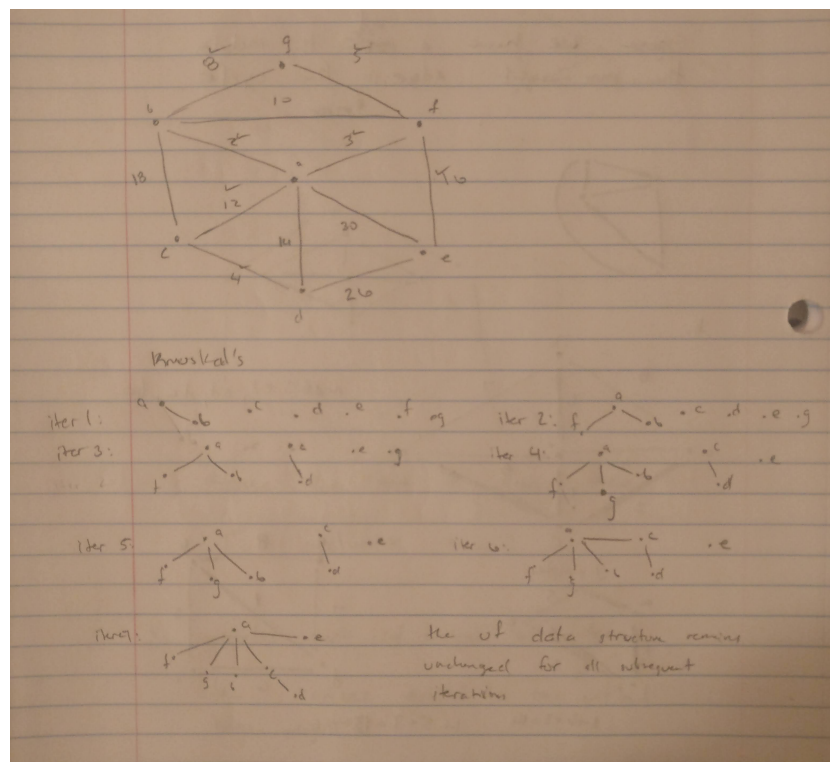 g
8 5
b 10 f
2 3
a
18 12 16
14 20
c e
4 26
d
Kruskal's
iter 1: a b c d e f g iter 2: a f b c d e g
iter 3: a f b c d e g iter 4: a f g b c d e
iter 5: a f g b c d e iter 6: a f g b c d e
a e the uf data structure remains
f g b c d unchanged for all subsequent
iterations